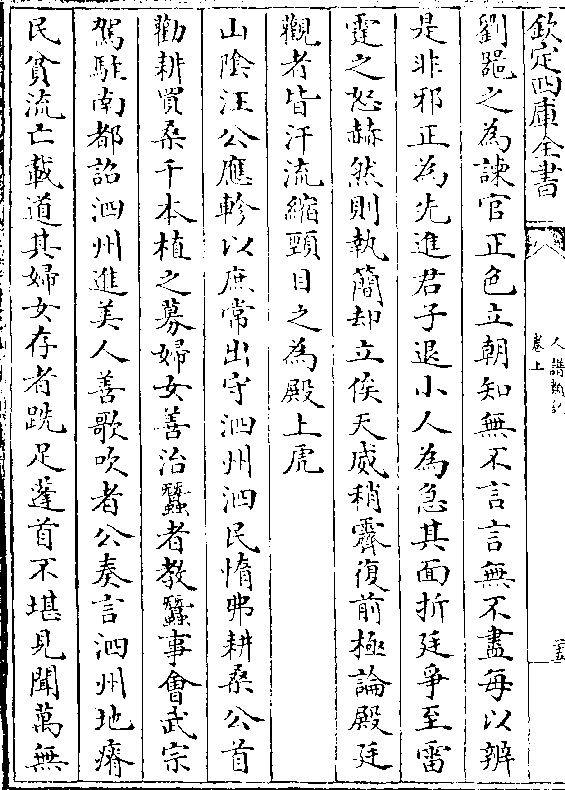 欽定四庫全書
人譜類記
卷上
三五
劉器之為諫官正色立朝知無不言言無不盡每以辨
是非邪正為先進君子退小人為急其面折廷爭至雷
霆之怒赫然則執簡却立俟天威稍霽復前極論殿廷
觀者皆汗流縮頸目之為殿上虎
山陰汪公應軫以庶常出守泗州泗民惰弗耕桑公首
勸耕買桑千本植之募婦女善治蠶者教蠶事會武宗
駕駐南都詔泗州進美人善歌吹者公奏言泗州地瘠
民貧流亡載道其婦女存者跣足蓬首不堪見聞萬無